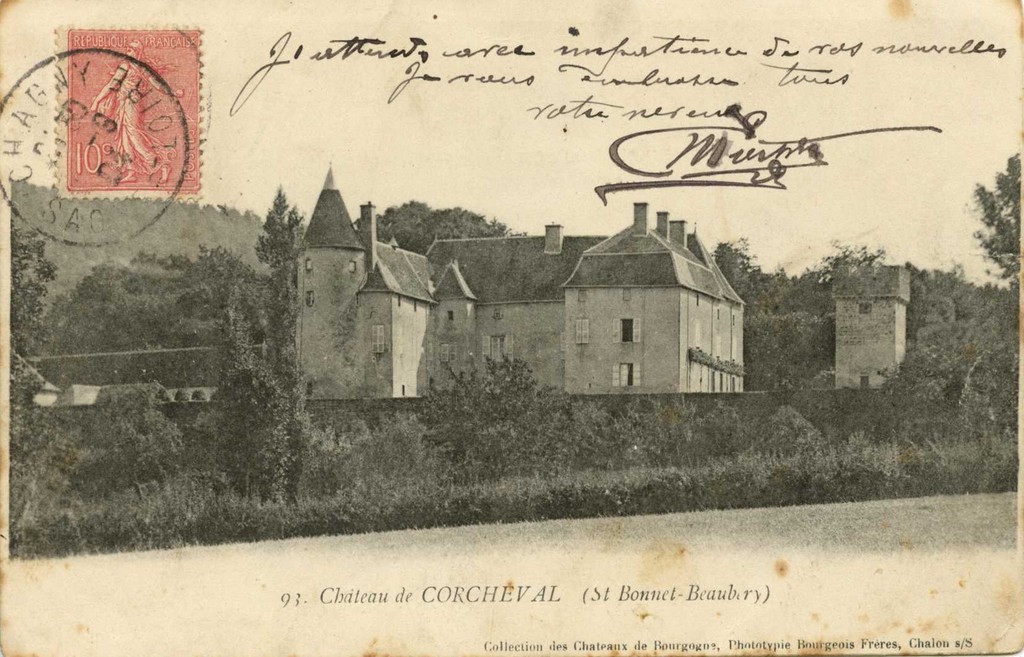 REPUBLIQUE FRANÇAISE
10c POSTES
CHAGNY
S. ET LOIRE
J'attends avec impatience de vos nouvelles
Je vous embrasse tous
votre neveu
93. Château de CORCHEVAL (St Bonnet-Beaubery)
Collection des Chateaux de Bourgogne, Phototypie Bourgeois Frères, Chalon s/S